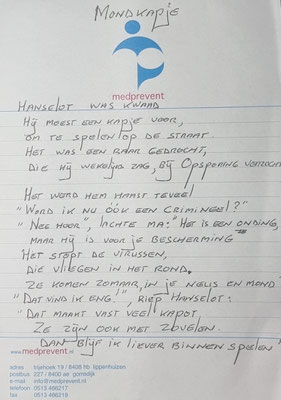 MONDKAPJE
medprevent
HANSELOT WAS KWAAD
HIJ MOEST EEN KAPJE VOOR,
OM TE SPELEN OP DE STRAAT.
HET WAS EEN RAAR GEDROCHT,
DIE HIJ WEKELIJKS ZAG, BIJ OPSPORING VERZOCHT
HET WERD HEM HAAST TEVEEL
"WORD IK NU ÓÓK EEN CRIMINEEL?"
"NEE HOOR", LACHTE MA. "HET IS EEN ONDING,
MAAR HIJ IS VOOR JE BESCHERMING
HET STOPT DE VIRUSSEN,
DIE VLIEGEN IN HET ROND.
ZE KOMEN ZOMAAR, IN JE NEUS EN MOND"
"DAT VIND IK ENG!", RIEP HANSELOT.
"DAT MAAKT VAST VEEL KAPOT.
ZE ZIJN OOK MET ZOVELEN.
DAN BLIJF IK LIEVER BINNEN SPELEN"
www.medprevent.nl
adres 19 / 8408 hb lippenhuizen
postbus 227 / 8400 ae gorredijk
e-mail info@medprevent.nl
telefoon 0513 466217
fax 0513 466218